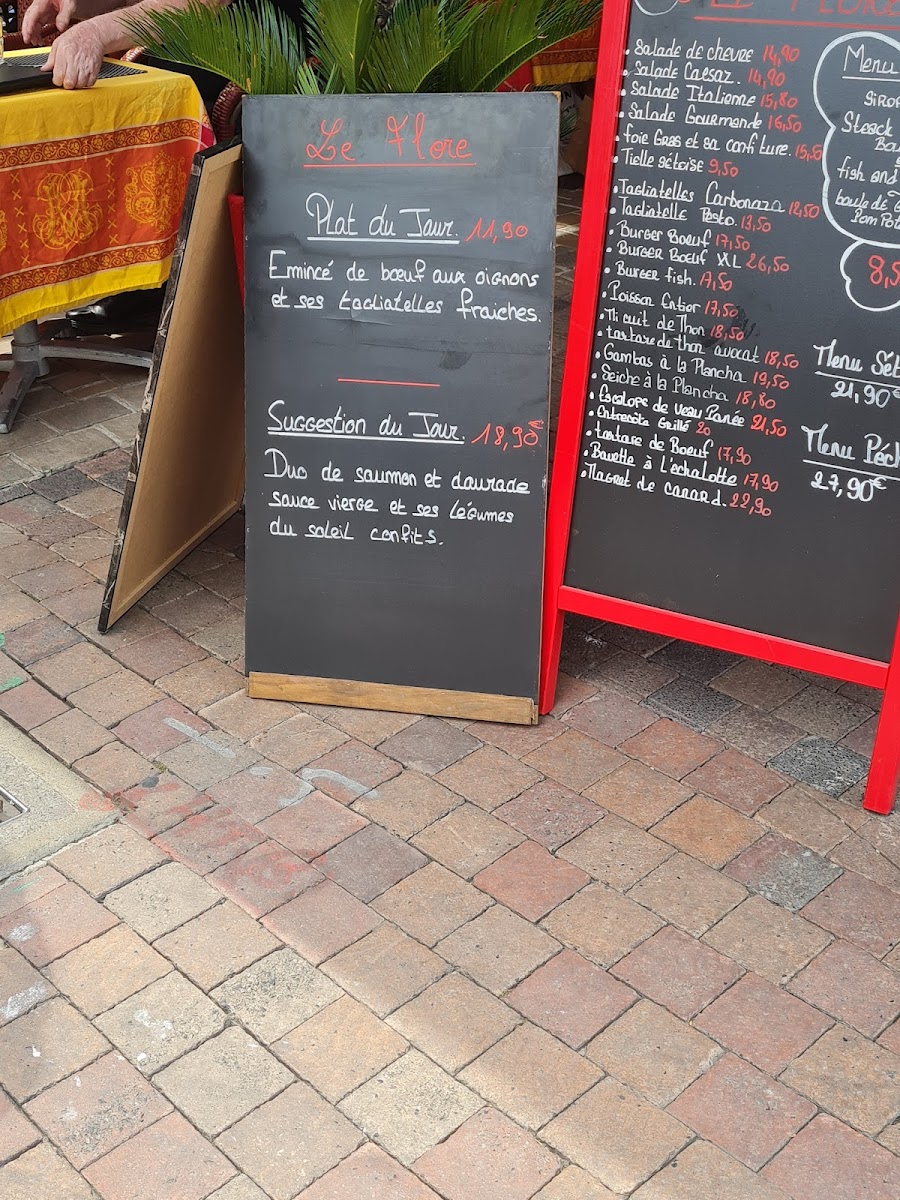 Le Flore
Plat du Jour. 11,90
Emincé de bœuf aux oignons
et ses tagliatelles fraiches.
Suggestion du Jour. 18,90€
Duo de saumon et daurade
sauce vierge et ses légumes
du soleil confits.
Salade de chevre 14,90
Salade Caesar. 14,90
Salade Italienne 15,80
Salade Gourmande 16,50
foie Gras et sa confiture. 15,50
Tielle sétoise 9,50
Tagliatelles Carbonara 12,50
Tagliatelle Pesto. 13,50
Burger Boeuf 17,50
Burger Boeuf XXL 26,50
Burger fish. 17,50
Poisson Entier 17,50
Mi cuit de Thon 18,50
tartare de thon avocat 18,50
Gambas à la Plancha 19,50
Seiche à la Plancha 18,80
Escalope de veau Panée 21,50
Entrecôte Grillé 20
tartare de Boeuf 17,90
Bavette à L'échalotte 17,90
Magret de canard. 22,90
Menu
Steack
fish and
boule de
Pom Pot
8,5
Menu Sét
21,90€
Menu Pêch
27,90€